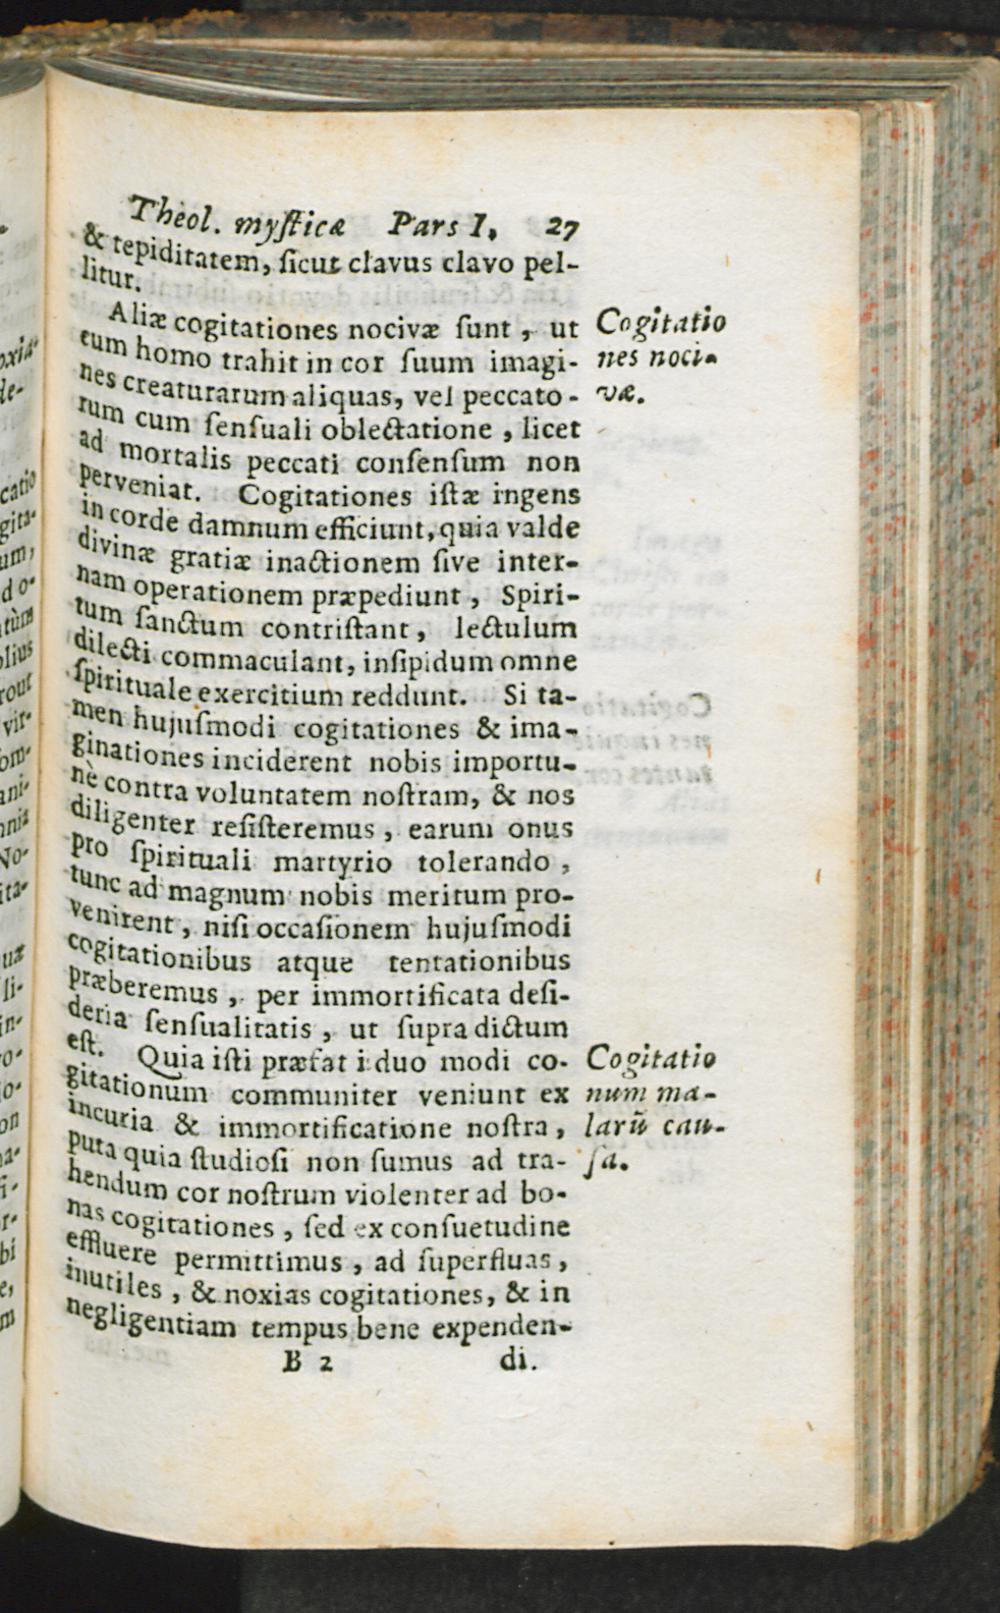 Theol. mysticæ Pars I. 27
& tepiditatem, ſicut clavus clavo pel-
litur.
Aliæ cogitationes nocivæ ſunt, ut
cum homo trahit in cor ſuum imagi-
nes creaturarum aliquas, vel peccato-
rum cum ſenſuali oblectatione, licet
ad mortalis peccati conſenſum non
perveniat. Cogitationes iſtæ ingens
in corde damnum efficiunt, quia valde
divinæ gratiæ inactionem ſive inter-
nam operationem præpediunt, Spiri-
tum ſanctum contriſtant, lectulum
dilecti commaculant, inſipidum omne
ſpirituale exercitium reddunt. Si ta-
men hujuſmodi cogitationes & ima-
ginationes inciderent nobis importu-
nè contra voluntatem noſtram, & nos
diligenter reſiſteremus, earum onus
pro ſpirituali martyrio tolerando,
tunc ad magnum nobis meritum pro-
venirent, niſi occaſionem hujuſmodi
cogitationibus atque tentationibus
præberemus, per immortificata deſi-
deria ſenſualitatis, ut ſupra dictum
eſt. Quia iſti præfati duo modi co-
gitationum communiter veniunt ex
incuria & immortificatione noſtra,
puta quia ſtudioſi non ſumus ad tra-
hendum cor noſtrum violenter ad bo-
nas cogitationes, ſed ex conſuetudine
effluere permittimus, ad ſuperfluas,
inutiles, & noxias cogitationes, & in
negligentiam tempus bene expenden-
B 2 di.
Cogitatio
nes noci-
væ.
Cogitatio
num ma-
larũ cau-
ſa.